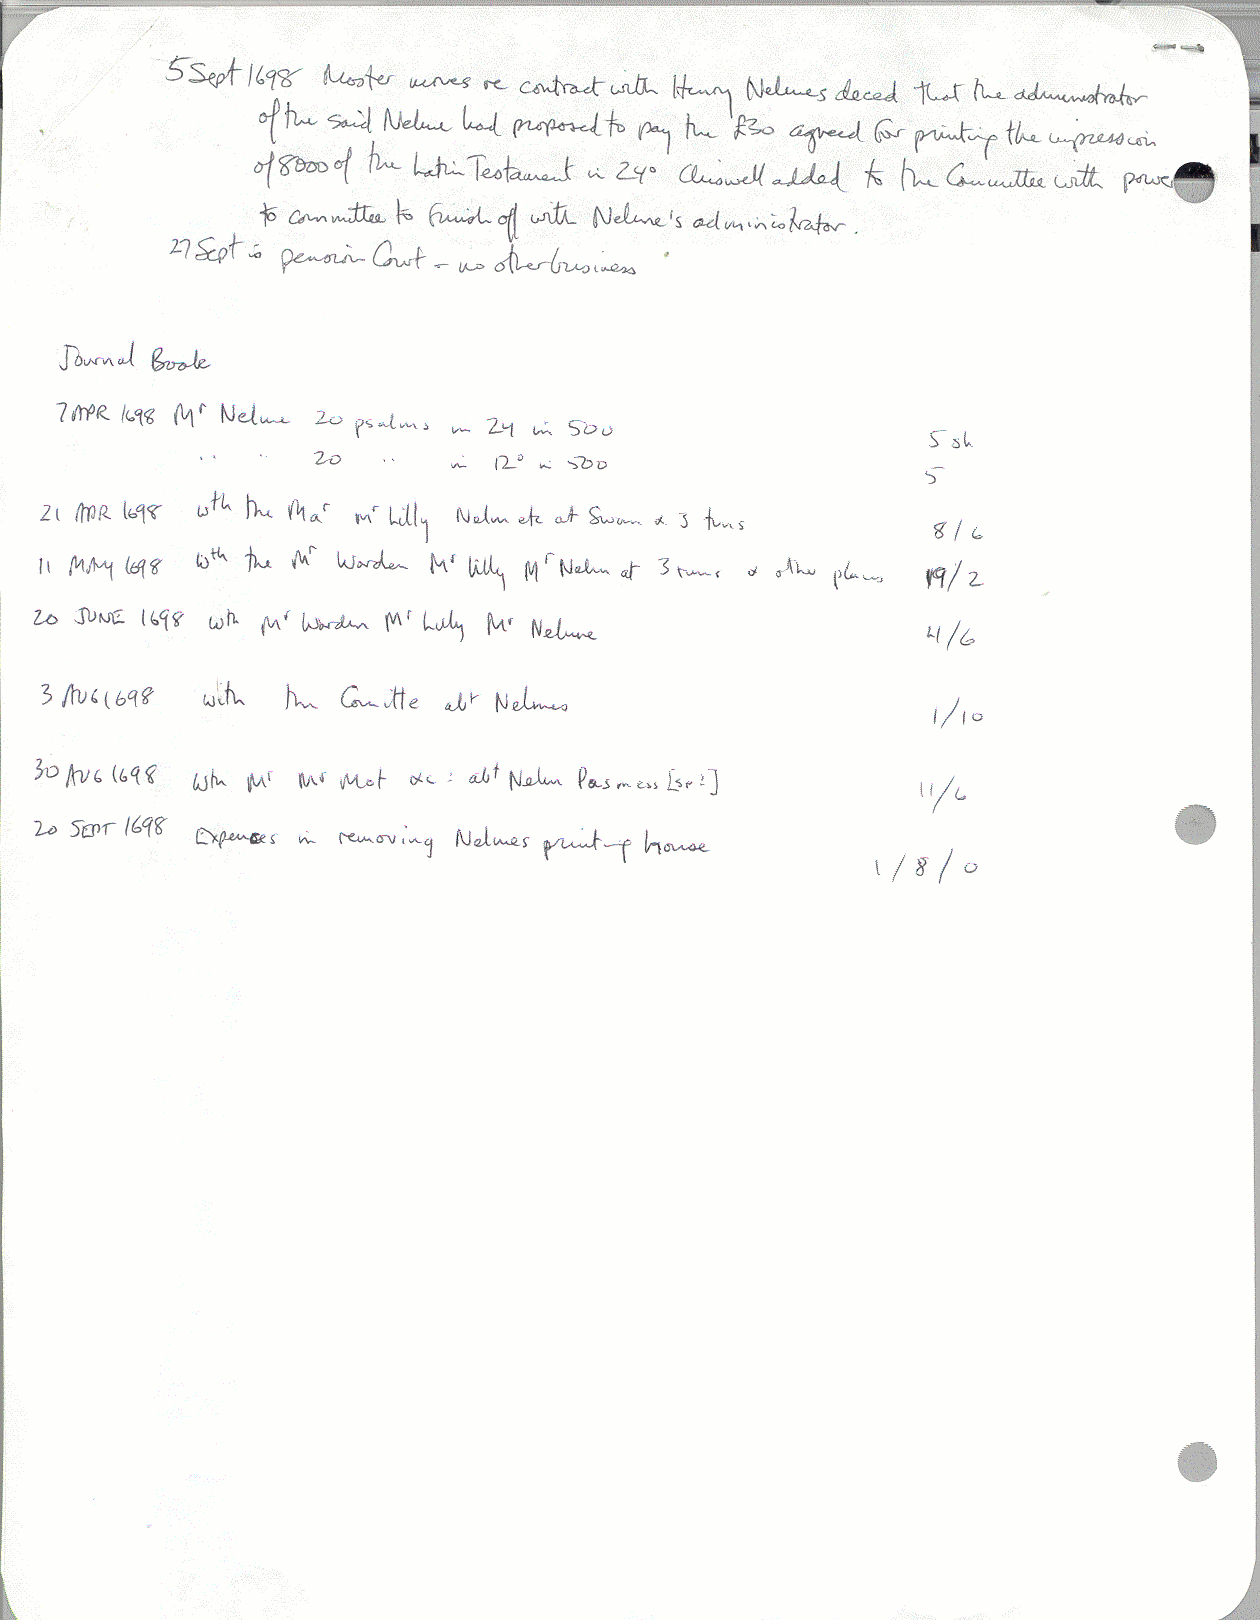 5 Sept 1698 Master moves re contract with Henry Nelmes deced that the administrator
of the said Nelme had proposed to pay the £30 agreed for printing the impression
of 8000 of the Latin Testament in 24° Chiswell added to the Committee with power
to committee to finish off with Nelme's administrator.
27 Sept is pension Court - no other business
Journal Book
7 APR 1698 Mr Nelme 20 psalms in 24 in 500 5 sh
" " 20 " in 12° in 500 5
21 APR 1698 wth the Mar Mr Lilly Nelm etc at Swan & 3 tuns 8/6
11 MAY 1698 wth the Mr Warden Mr Lilly Mr Nelm at 3 tuns & other places 19/2
20 JUNE 1698 wth Mr Warden Mr Lilly Mr Nelme 4/6
3 AUG 1698 with the Comitte abt Nelmes 1/10
30 AUG 1698 wth Mr Mr Mot &c: abt Nelm [sp?] 11/6
20 SEPT 1698 Expences in removing Nelmes printing house
1/8/0